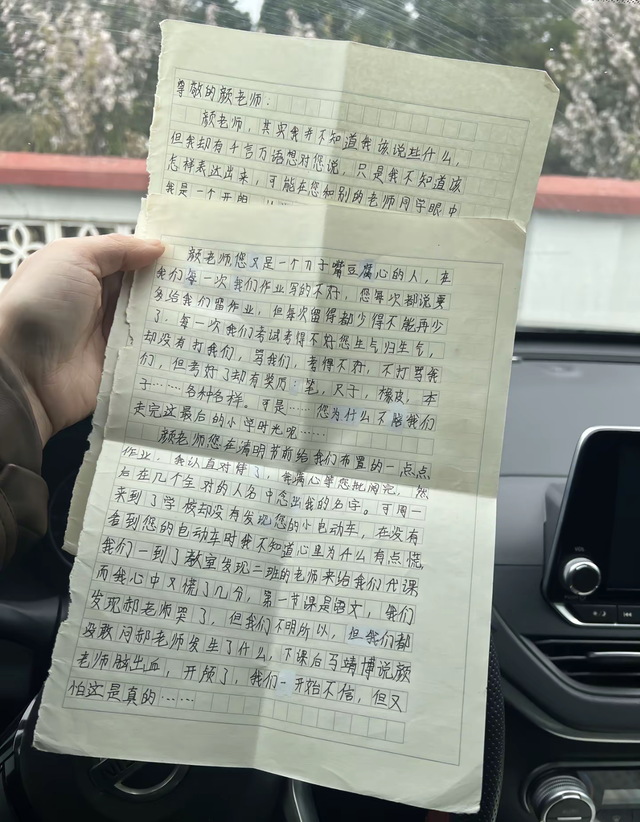 尊敬的颜老师：
颜老师，其实我并不知道我该说些什么，
但我却有千言万语想对您说，只是我不知道该
怎样表达出来，可能在您和别的老师同学眼中
我是一个开朗
颜老师您又是一个刀子嘴豆腐心的人，在
我们每一次我们作业写的不好，您每次都说要
多给我们留作业，但每次留得都少得不能再少
了。每一次我们考试考得不好您生气归生气，
却没有打我们，骂我们，考得不好，不打骂我
们，但考好了却有奖历：笔，尺子，橡皮，本
子……各种名样。可是……您为什么不陪我们
走完这最后的小学时光呢……
颜老师您在清明节前给我们布置的一点点
作业，我认真对待了，我满心等您批阅完，然
后在几个全对的人名中念出我的名字。可周一
来到了学校却没有发现您的小电动车，在没有
看到您的电动车时我不知道心里为什么有点慌，
我们一到了教室发现二班的老师来给我们代课
而我心中又慌了几分，第一节课是语文，我们
发现郝老师哭了，但我们不明所以，但我们都
没敢问郝老师发生了什么，下课后马靖博说颜
老师脑出血，开颅了，我们一开始不信，但又
怕这是真的……
VOL